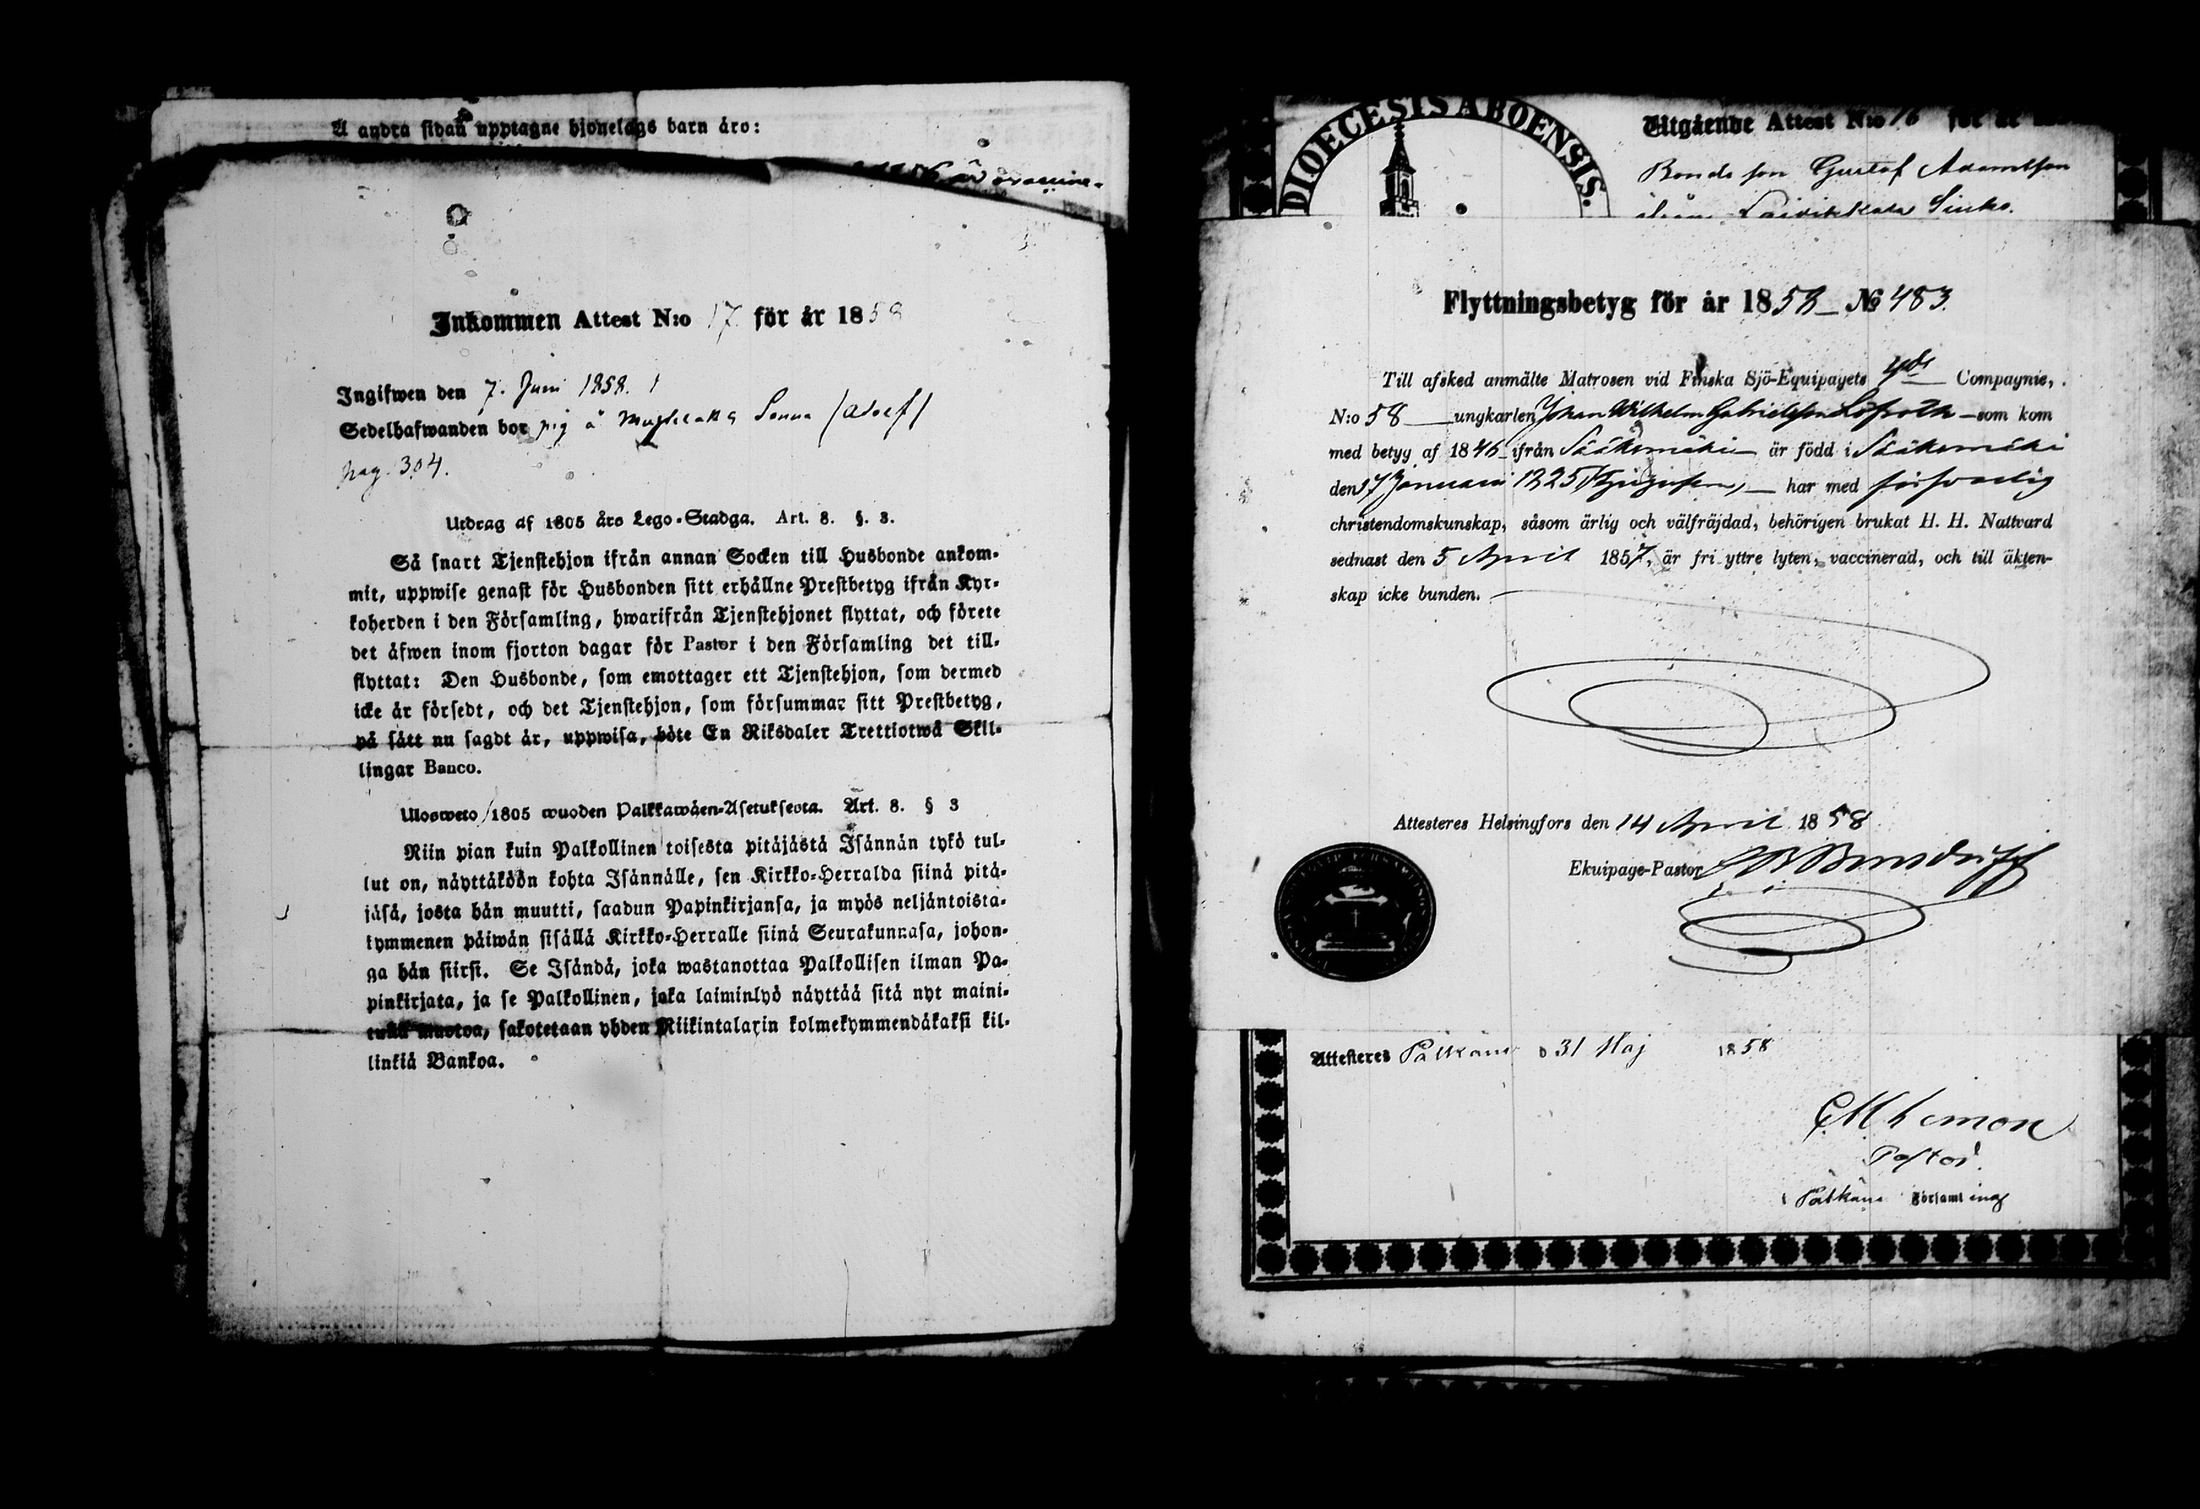 Å andra sidan upptagne hjonelags barn äro:
Inkommen Attest N:o 17 för år 1858
Ingifwen den 7. Juni 1858.
Sedelhafwanden bor pig å
pag. 304.
Utdrag af 1805 års Lego-Stadga. Art. 8. §. 3.
Så snart Tjenstehjon ifrån annan Socken till Husbonde ankom-
mit, uppwise genast för Husbonden sitt erhållne Prestbetyg ifrån Kyr-
koherden i den Församling, hwarifrån Tjenstehjonet flyttat, och förete
det äfwen inom fjorton dagar för Pastor i den Församling det till-
flyttat: Den Husbonde, som emottager ett Tjenstehjon, som dermed
icke är försedt, och det Tjenstehjon, som försummar sitt Prestbetyg,
på sätt nu sagdt är, uppwisa, böte En Riksdaler Trettiotwå Skil-
lingar Banco.
Ulosweto 1805 wuoden Palkkawäen-Asetuksesta. Art. 8. § 3
Niin pian kuin Palkollinen toisesta pitäjästä Isännän tykö tul-
lut on, näyttäköön kohta Isännälle, sen Kirkko-Herralda siinä pitä-
jäsä, josta hän muutti, saadun Papinkirjansa, ja myös neljäntoista-
kymmenen päiwän sisällä Kirkko-Herralle siinä Seurakunnasa, johon-
ga hän siirsi. Se Isändä, joka wastanottaa Palkollisen ilman Pa-
pinkirjata, ja se Palkollinen, joka laiminlyö näyttää sitä nyt maini-
tulla muotoa, sakotetaan yhden Riikintalarin kolmekymmendäkaksi kil-
linkiä Bankoa.
DIOECESIS ABOENSIS.
Utgående Attest N:o 16 för år
Bonde son Gustaf Adamsson
Flyttningsbetyg för år 1858 № 483.
Till afsked anmälte Matrosen vid Finska Sjö-Equipagets 4de Compagnie,
N:o 58 ungkarlen Johan Wilhelm Gabrielsson Löfroth som kom
med betyg af 1846 ifrån Sääksmäki är född i Sääksmäki
den 17 Januari 1825 har med försvarlig
christendomskunskap, såsom ärlig och välfräjdad, behörigen brukat H. H. Nattvard
sednast den 5 April 1857, är fri yttre lyten, vaccinerad, och till äkten-
skap icke bunden.
Attesteres Helsingfors den 14 April 1858
Ekuipage-Pastor
Attesteres Pälkäne d 31 Maj 1858
Pastor.
i Pälkäne Församling